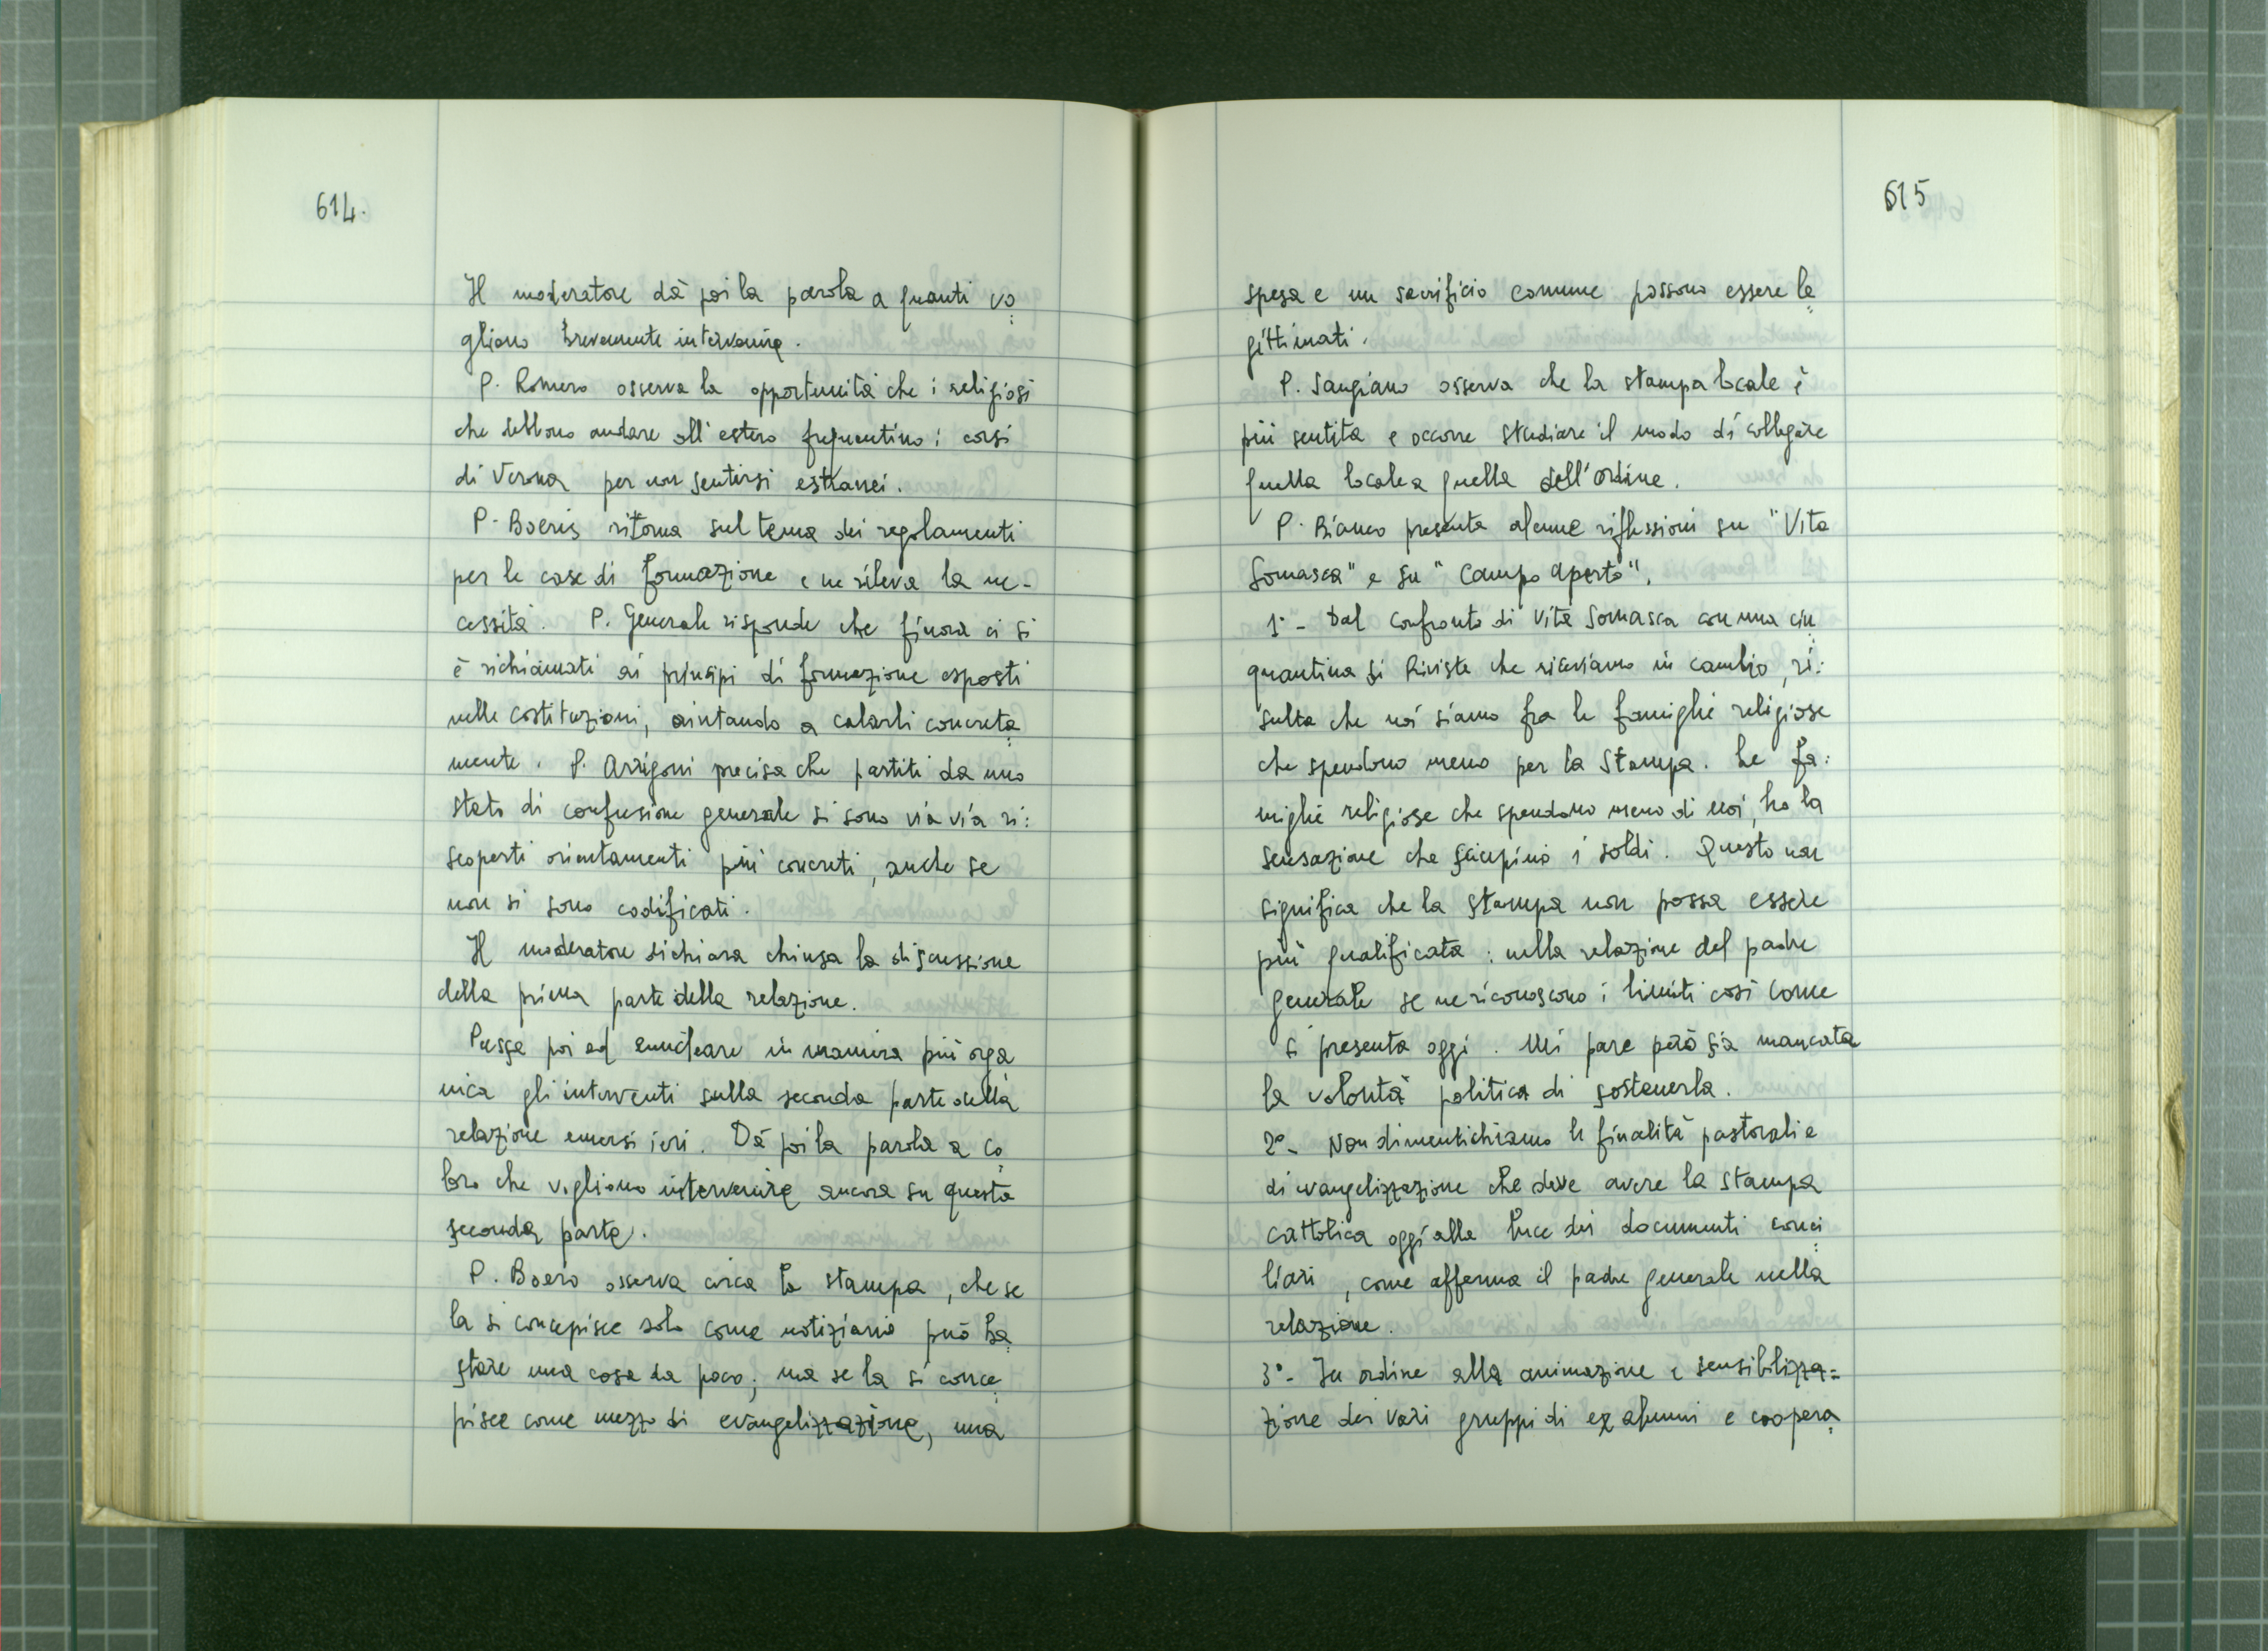 614.
Il moderatore dà poi la parola a quanti vo
gliono brevemente intervenire.
P. Romero osserva la opportunità che i religiosi
che debbono andare all'estero frequentino i corsi
di Verona per non sentirsi estranei.
P. Boeris ritorna sul tema dei regolamenti
per le case di formazione e ne rileva la ne-
cessità. P. Generale risponde che finora ci si
è richiamati ai principi di formazione esposti
nelle costituzioni, aiutando a calarli concreta
mente. P. Arrigoni precisa che partiti da uno
stato di confusione generale si sono via via ri:
scoperti orientamenti più concreti, anche se
non si sono codificati.
Il moderatore dichiara chiusa la discussione
della prima parte della relazione.
Passa poi ad enucleare in maniera più orga
nica gli interventi sulla seconda parte della
relazione emersi ieri. Dà poi la parola a co
loro che vogliono intervenire ancora su questa
seconda parte.
P. Boero osserva circa la stampa, che se
la si concepisce solo come notiziario può ba
stare una cosa da poco; ma se la si conce
pisce come mezzo di evangelizzazione, una
615
spesa e un sacrificio comune possono essere le
gittimati.
P. Sangiano osserva che la stampa locale è
più sentita e occorre studiare il modo di collegare
quella locale a quella dell'Ordine.
P. Bianco presenta alcune riflessioni su "Vita
Somasca" e su "Campo aperto".
1° - Dal confronto di Vita Somasca con una cin
quantina di Riviste che riceviamo in cambio, ri:
sulta che noi siamo fra le famiglie religiose
che spendono meno per la Stampa. Le fa:
miglie religiose che spendono meno di noi, ho la
sensazione che sciupino i soldi. Questo non
significa che la stampa non possa essere
più qualificata: nella relazione del padre
generale se ne riconoscono i limiti così come
si presenta oggi. Mi pare però sia mancata
la volontà politica di sostenerla.
2° - Non dimentichiamo le finalità pastorali e
di evangelizzazione che deve avere la stampa
cattolica oggi alla luce dei documenti conci
liari, come afferma il padre generale nella
relazione.
3° - In ordine alla animazione e sensibilizza=
zione dei vari gruppi di ex alunni e coopera